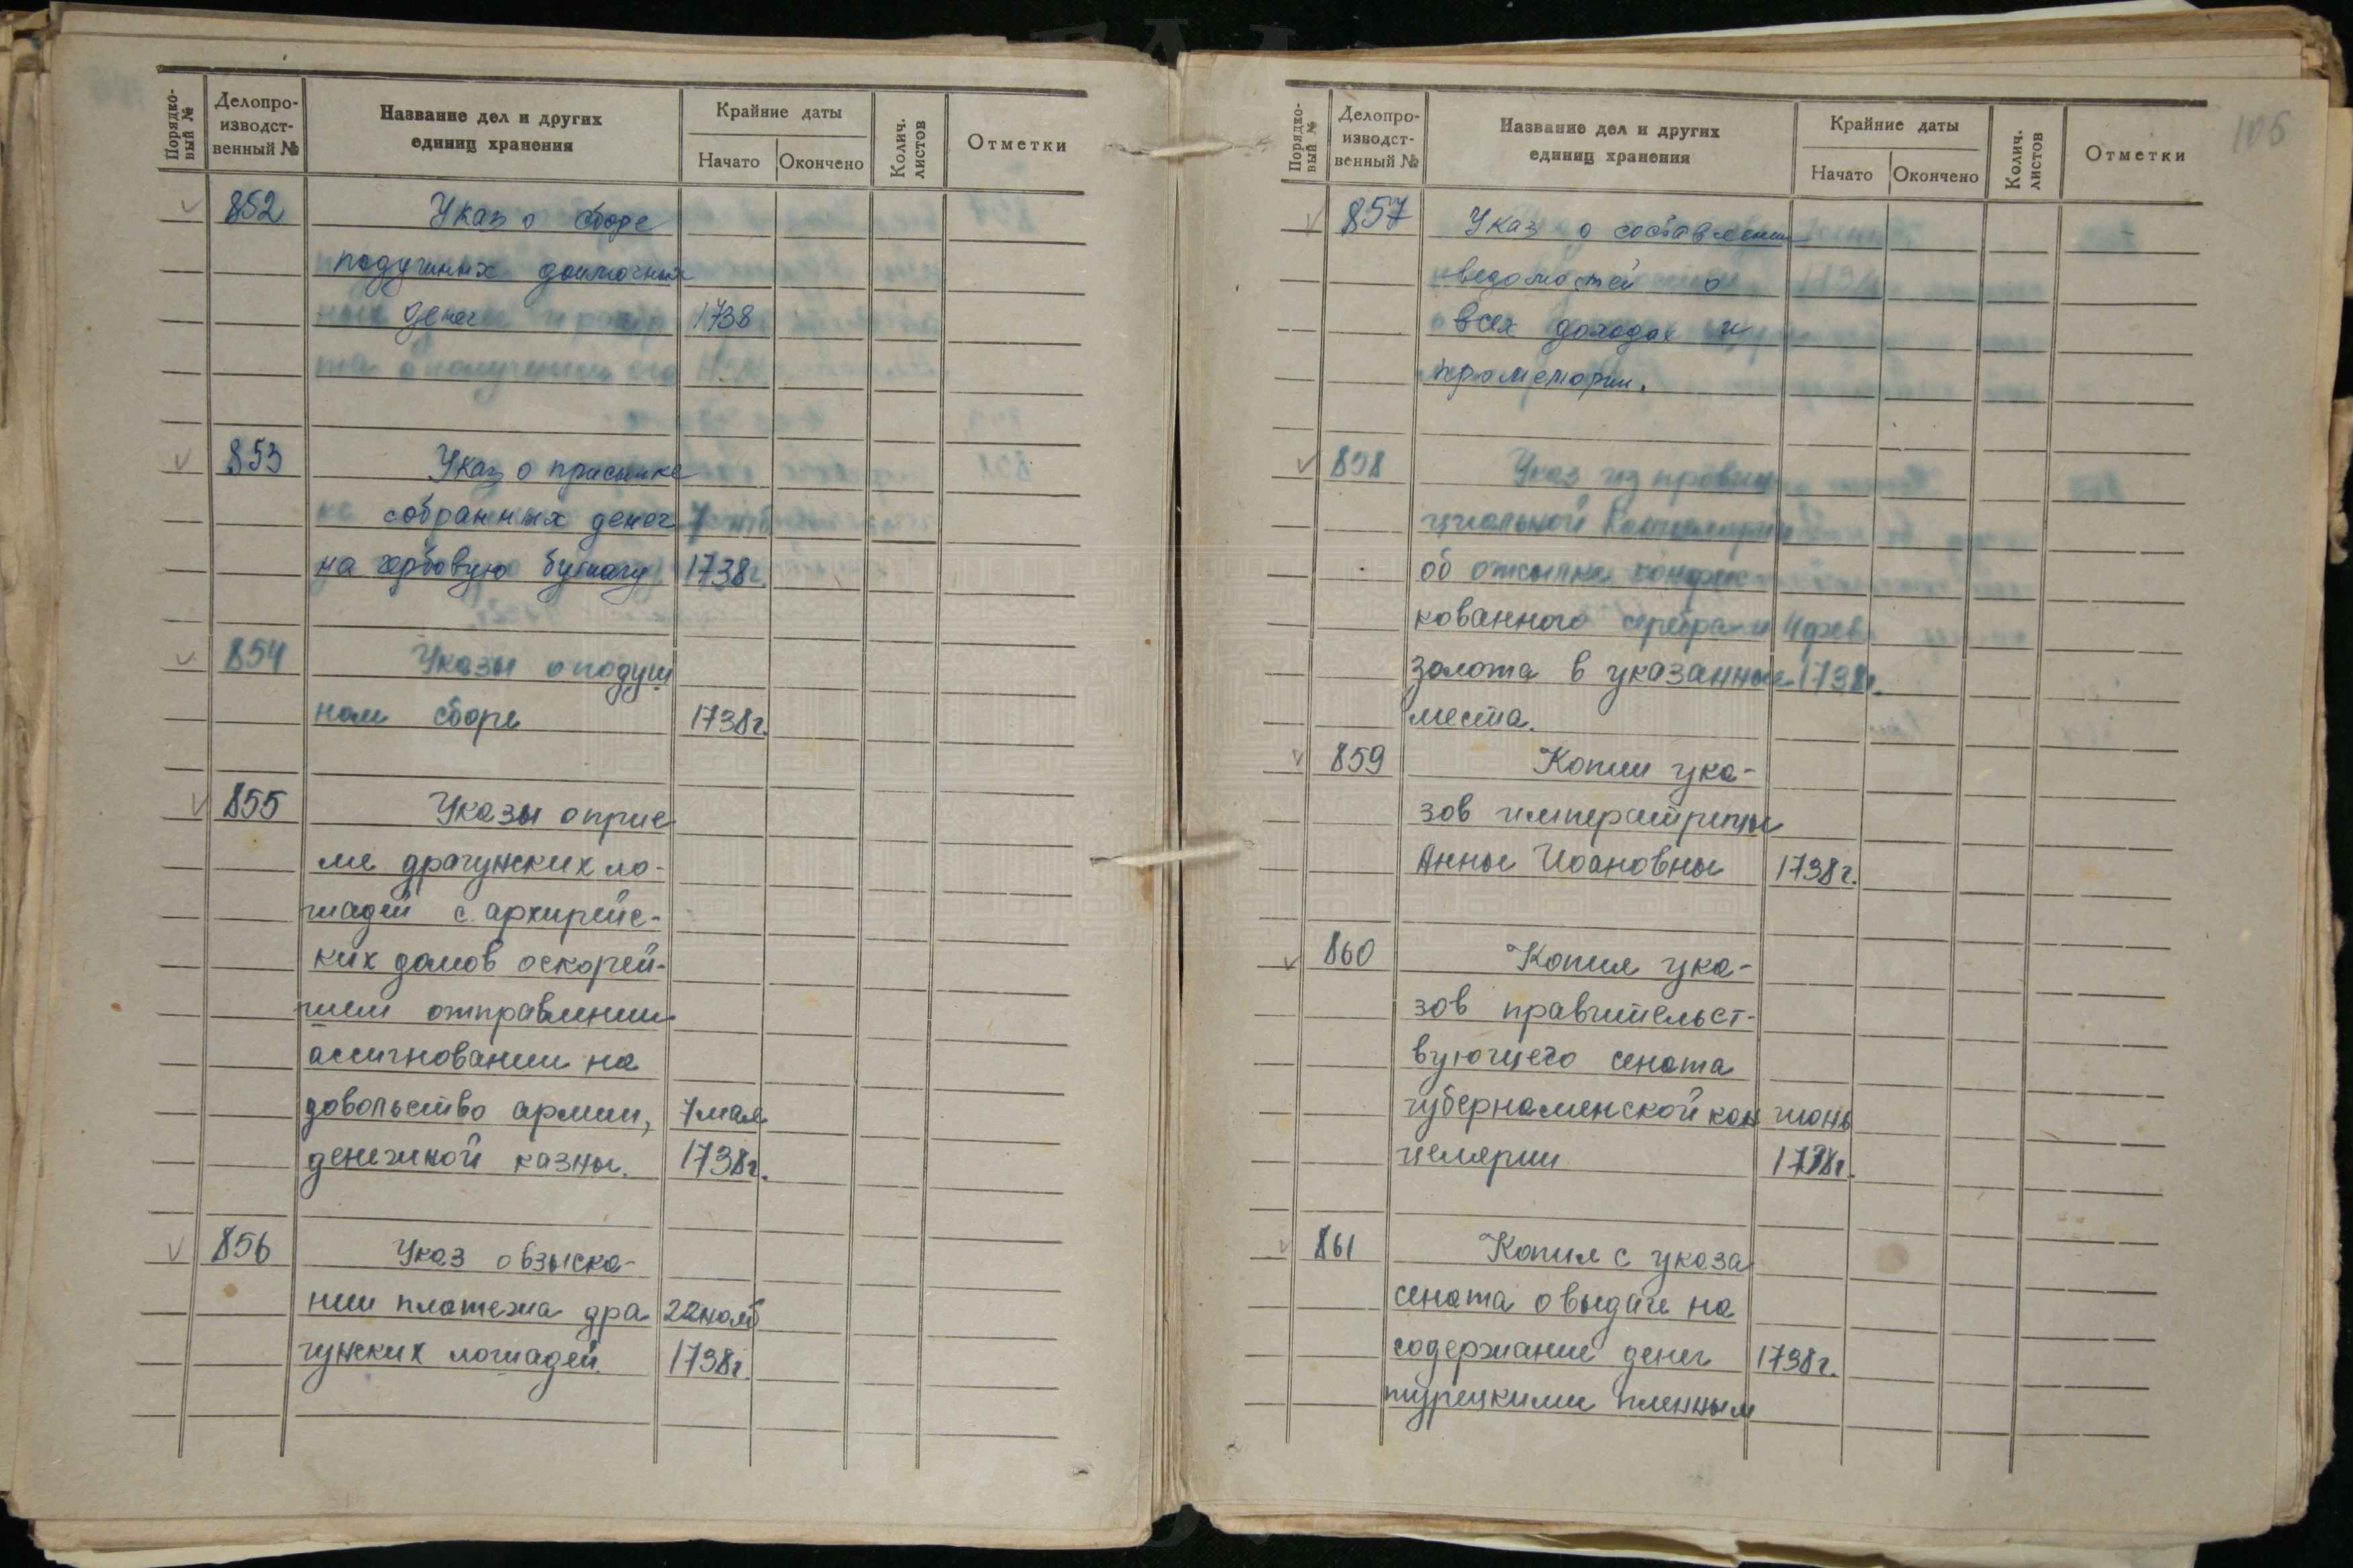 Порядко-
вый №
Делопро-
изводст-
венный №
Название дел и других
единиц хранения
Крайние даты
Начато
Окончено
Колич.
листов
Отметки
852 Указ о сборе
подушных доимочных
денег 1738
853 Указ о присылке
собранных денег 7
на гербовую бумагу 1738г.
854 Указы о подуш
ном сборе 1738г.
855 Указы о прие
ме драгунских ло-
шадей с архирейс-
ких домов оскорей-
шем отправлении
ассигновании на
довольствo армии, 7 мая
денежной казны. 1738г.
856 Указ о взыска-
нии платежа дра 22 нояб
гунских лошадей. 1738г.
105
Порядко-
вый №
Делопро-
изводст-
венный №
Название дел и других
единиц хранения
Крайние даты
Начато
Окончено
Колич.
листов
Отметки
857 Указ о составлении
ведомостей о
всех доходах и
промемории.
858 Указ из провин
циальной Канцелярии
об отсылке конфис
кованного серебра и 4 фев
золота в указанные 1738г.
места.
859 Копии ука-
зов императрицы
Анны Иоановны 1738г.
860 Копия ука-
зов правительст-
вующего сената
губернаменской кан июнь
целярии 1738г.
861 Копия с указа
сената о выдаче на
содержание денег 1738г.
турецкими пленным